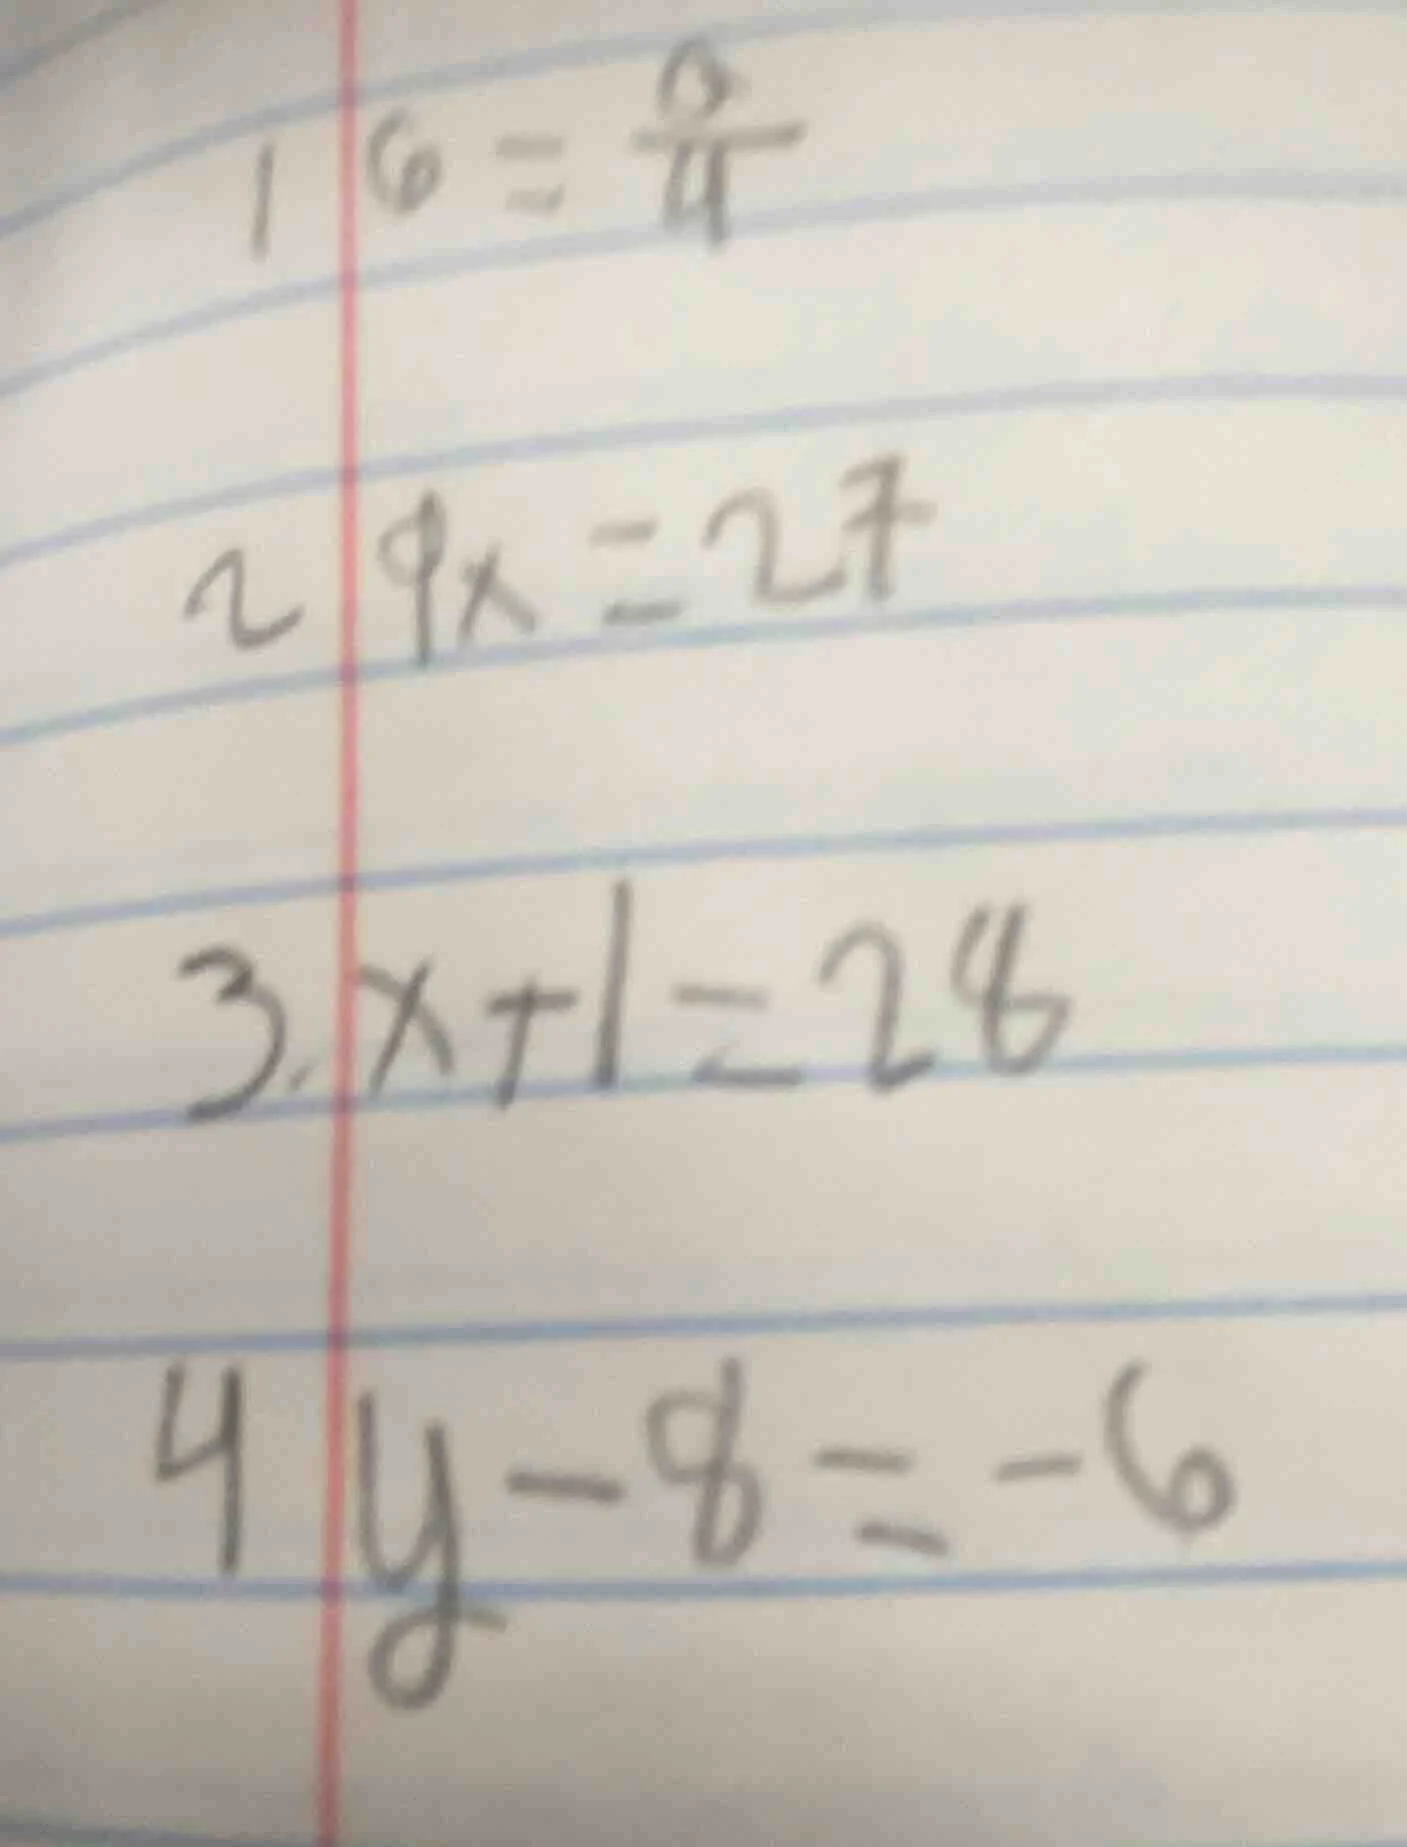 1 6 = a/4
2 9x = 27
3. x+1 = 28
4 y - 8 = -6